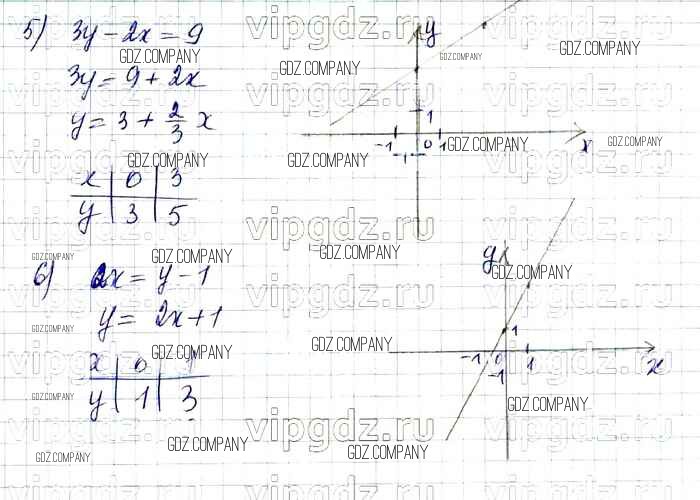 5) 3y - 2x = 9
3y = 9 + 2x
y = 3 + 2/3 x
x | 0 | 3
y | 3 | 5
y
1
-1 0 1 x
-1
6) 2x = y - 1
y = 2x + 1
x | 0 | 1
y | 1 | 3
y
1
-1 0 1 x
-1
vipgdz.ru
GDZ.COMPANY